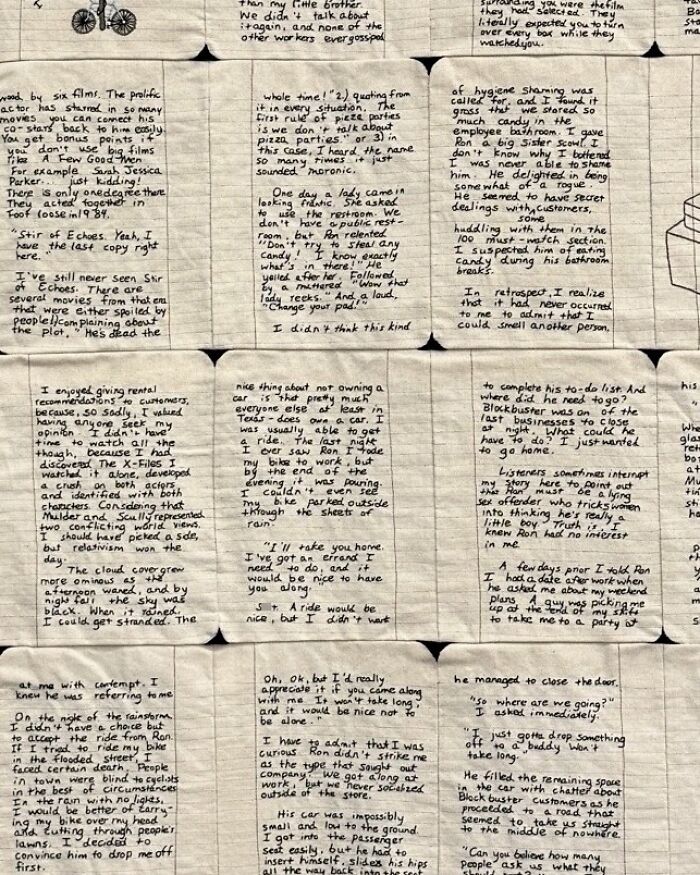 than my little brother.
We didn't talk about
it again, and none of the
other workers ever gossiped
surrounding you were the film
they had selected. They
literally expected you to turn
over every box while they
watched you.
wood by six films. The prolific
actor has starred in so many
movies you can connect his
co-stars back to him easily.
You get bonus points if
you don't use big films
like A Few Good Men
For example Sarah Jessica
Parker... just kidding!
There is only one degree there
They acted together in
Footloose in 1984.
"Stir of Echoes. Yeah, I
have the last copy right
here."
I've still never seen Stir
of Echoes. There are
several movies from that era
that were either spoiled by
people 1) complaining about
the plot, "He's dead the
whole time!" 2.) quoting from
it in every situation. The
first rule of pizza parties
is we don't talk about
pizza parties." or 3) in
this case, I heard the name
so many times it just
sounded moronic.
One day a lady came in
looking frantic. She asked
to use the restroom. We
don't have a public rest-
room, but Ron relented
"Don't try to steal any
candy! I know exactly
what's in there!" He
yelled after her. Followed
by a muttered "Wow that
lady reeks." And a loud,
"Change your pad!"
I didn't think this kind
of hygiene shaming was
called for, and I found it
gross that we stored so
much candy in the
employee bathroom. I gave
Ron a big Sister Scowl. I
don't know why I bothered
I was never able to shame
him. He delighted in being
somewhat of a rogue.
He seemed to have secret
dealings with customers,
some
huddling with them in the
100 must-watch section.
I suspected him of eating
candy during his bathroom
breaks.
In retrospect, I realize
that it had never occurred
to me to admit that I
could smell another person.
I enjoyed giving rental
recommendations to customers,
because, so sadly, I valued
having anyone seek my
opinion. I didn't have
time to watch all the
though, because I had
discovered The X-Files I
watched it alone, developed
a crush on both actors,
and identified with both
characters. Considering that
Mulder and Scully represented
two conflicting world views.
I should have picked a side,
but relativism won the
day.
The cloud cover grew
more ominous as the
afternoon waned, and by
night fall the sky was
black. When it rained,
I could get stranded. The
nice thing about not owning a
car is that pretty much
everyone else at least in
Texas - does own a car. I
was usually able to get
a ride. The last night
I ever saw Ron I rode
my bike to work, but
by the end of the
evening it was pouring.
I couldn't even see
my bike parked outside
through the sheets of
rain.
"I'll take you home.
I've got an errand I
need to do, and it
would be nice to have
you along."
A ride would be
nice, but I didn't want
to complete his to-do list. And
where did he need to go?
Blockbuster was on of the
last businesses to close
at night. What could he
have to do? I just wanted
to go home.
Listeners sometimes interrupt
my story here to point out
this Ron must be a lying
sex offender who tricks women
into thinking he's really a
little boy. Truth is, I
knew Ron had no interest
in me.
A few days prior I told Ron
I had a date after work when
he asked me about my weekend
plans. A guy was picking me
up at the end of my shift
to take me to a party at
his
at me with contempt. I
knew he was referring to me
On the night of the rainstorm,
I didn't have a choice but
to accept the ride from Ron.
If I tried to ride my bike
in the flooded street, I
faced certain death. People
in town were blind to cyclists
in the best of circumstances
In the rain with no lights,
I would be better of carry-
ing my bike over my head
and cutting through people's
lawns. I decided to
convince him to drop me off
first.
Oh, Ok, but I'd really
appreciate it if you came along
with me. It won't take long,
and it would be nice not to
be alone."
I have to admit that I was
curious Ron didn't strike me
as the type that sought out
company. We got along at
work, but we never socialized
outside of the store.
His car was impossibly
small and low to the ground.
I got into the passenger
seat easily, but he had to
insert himself, slides his hips
all the way back into the seat
he managed to close the door.
"So where are we going?"
I asked immediately.
"I just gotta drop something
off to a buddy Won't
take long."
He filled the remaining space
in the car with chatter about
Blockbuster customers as he
proceeded to a road that
seemed to take us straight
to the middle of nowhere.
"Can you believe how many
people ask us what they